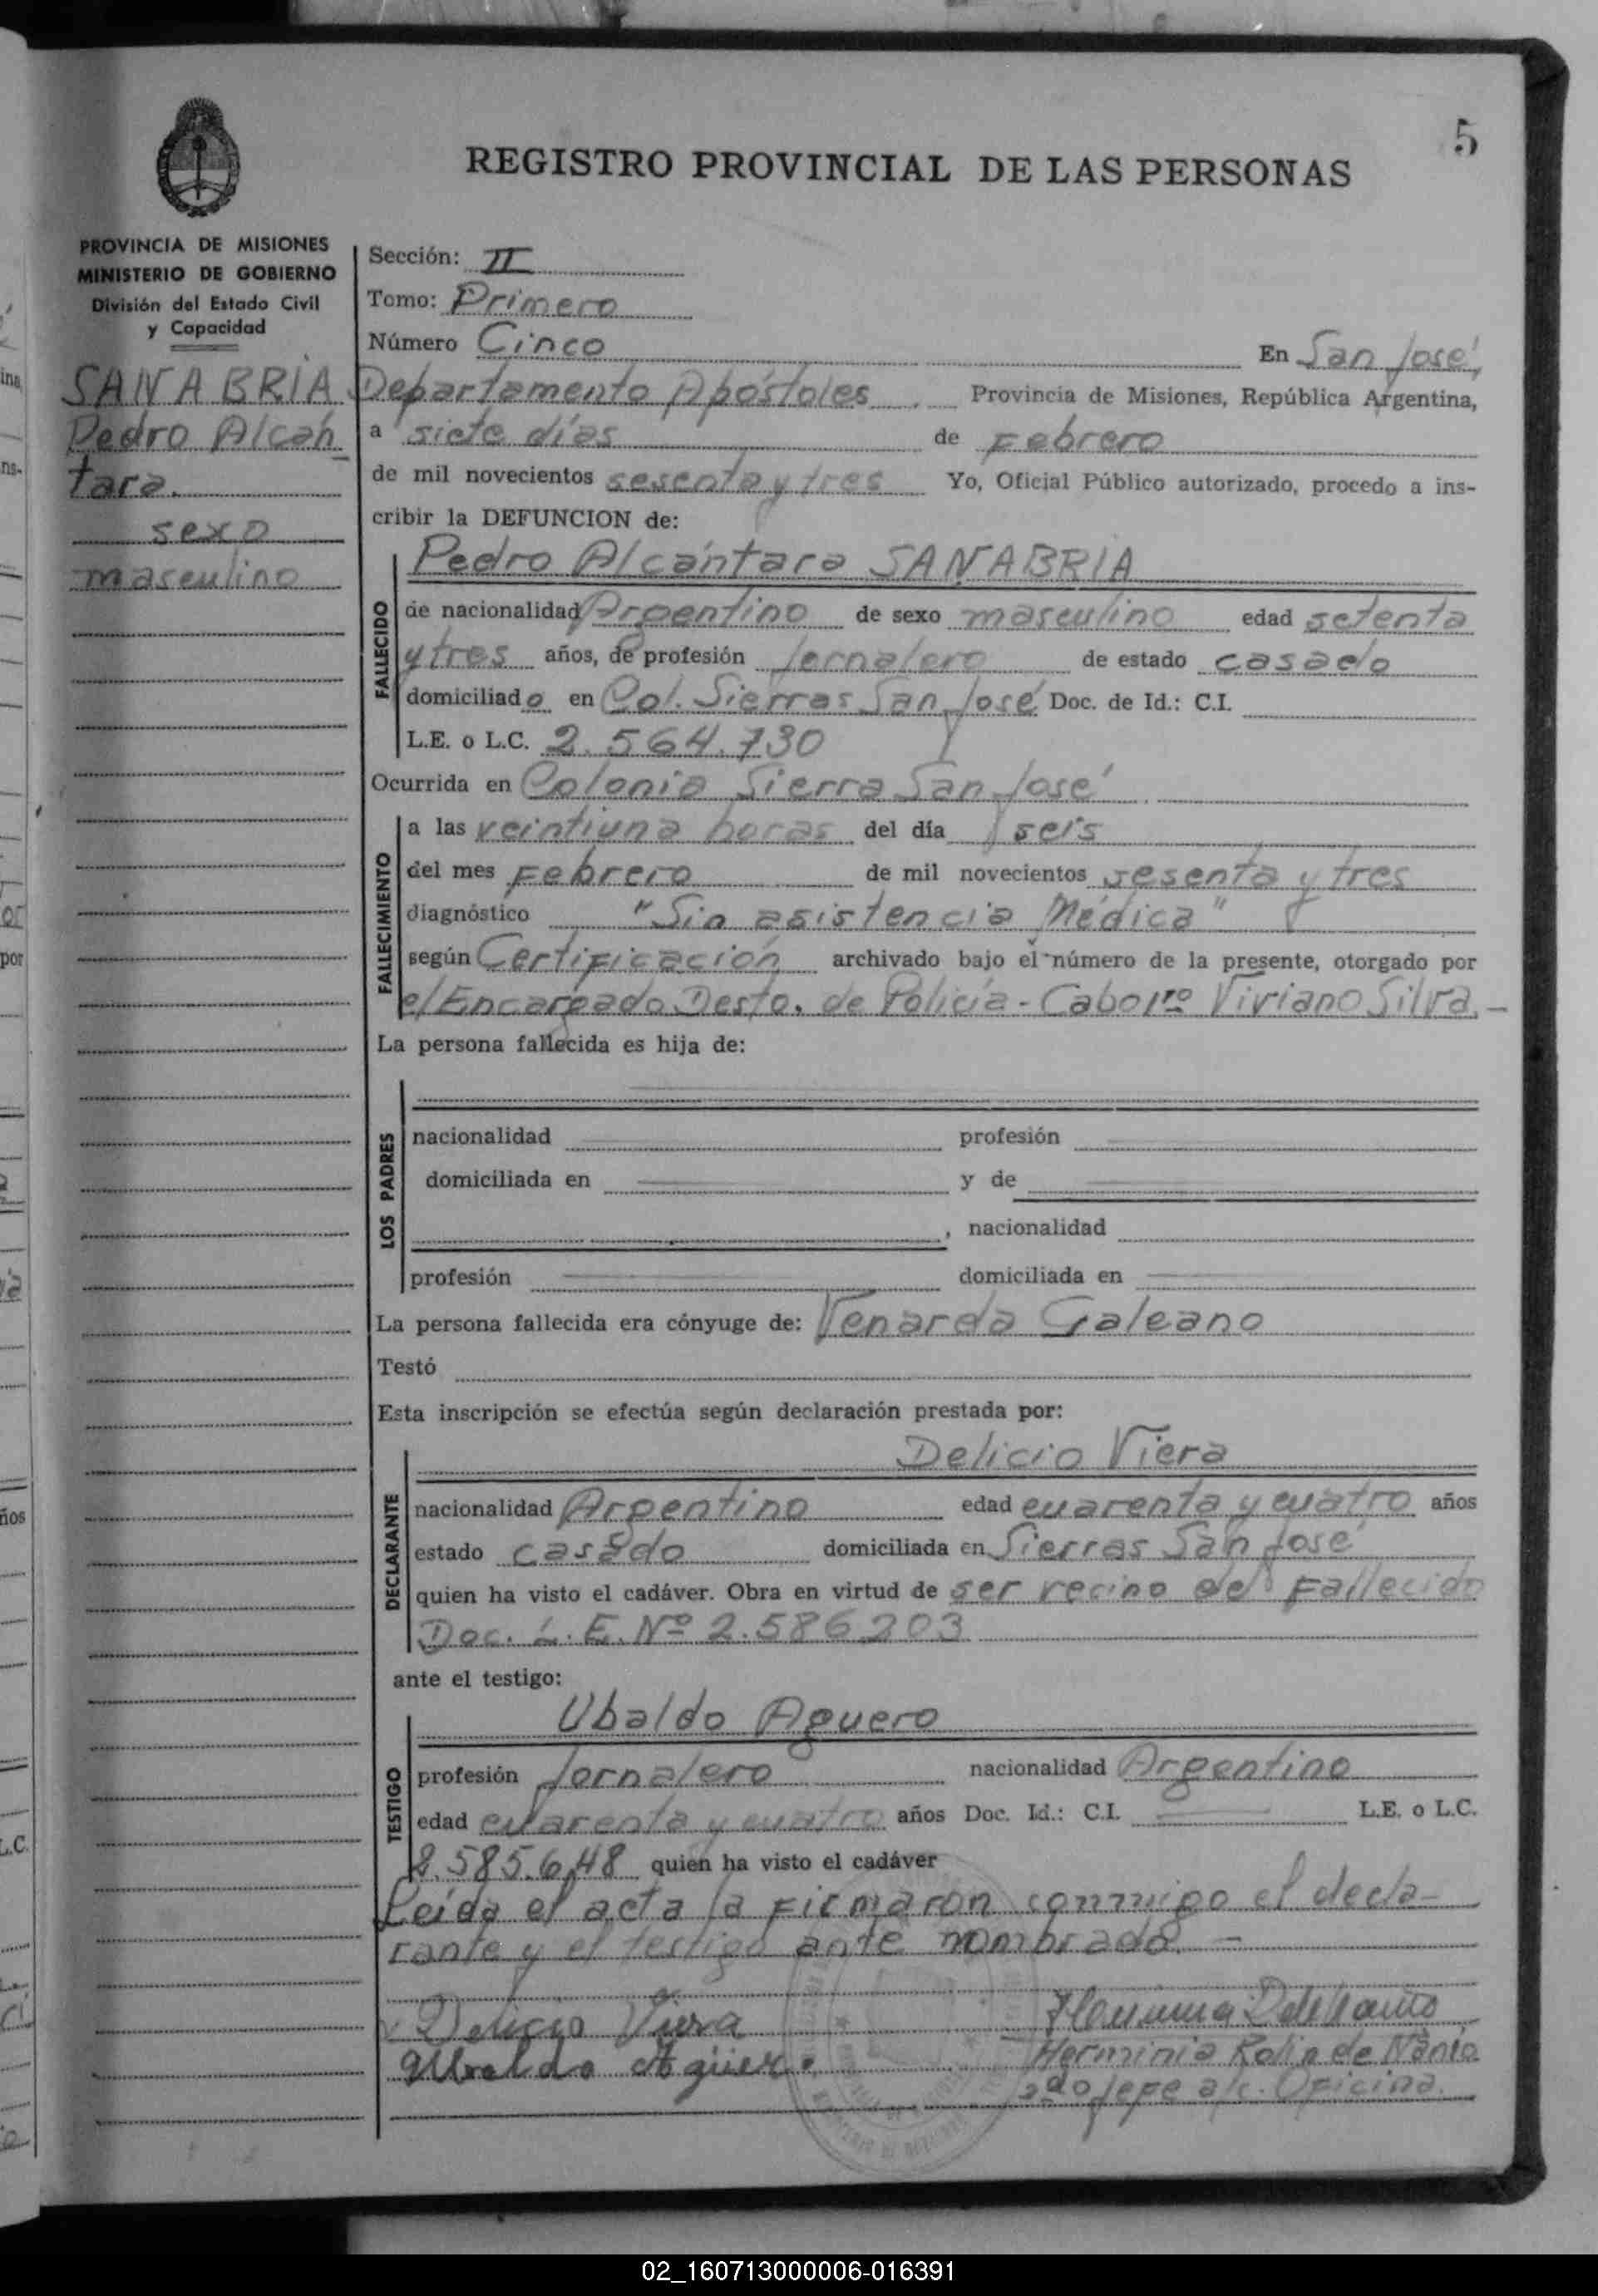 5
REGISTRO PROVINCIAL DE LAS PERSONAS
PROVINCIA DE MISIONES
MINISTERIO DE GOBIERNO
División del Estado Civil
y Capacidad
SANABRIA
Pedro Alcán
tara.
sexo
masculino
Sección: II
Tomo: Primero
Número Cinco En San José,
Departamento Apóstoles, Provincia de Misiones, República Argentina,
a siete días de Febrero
de mil novecientos sesenta y tres Yo, Oficial Público autorizado, procedo a ins-
cribir la DEFUNCION de:
Pedro Alcántara SANABRIA
FALLECIDO
de nacionalidad Argentino de sexo masculino edad setenta
y tres años, de profesión Jornalero de estado casado
domiciliado en Col. Sierras San José Doc. de Id.: C.I.
L.E. o L.C. 2.564.730
Ocurrida en Colonia Sierra San José
FALLECIMIENTO
a las veintiuna horas del día seis
del mes Febrero de mil novecientos sesenta y tres
diagnóstico "Sin asistencia Médica"
según Certificación archivado bajo el número de la presente, otorgado por
el Encargado Desto. de Policía - Cabo 1ro Viviano Silva.-
La persona fallecida es hija de:
LOS PADRES
nacionalidad profesión
domiciliada en y de
, nacionalidad
profesión domiciliada en
La persona fallecida era cónyuge de: Venarda Galeano
Testó
Esta inscripción se efectúa según declaración prestada por:
Delicio Viera
DECLARANTE
nacionalidad Argentino edad cuarenta y cuatro años
estado casado domiciliada en Sierras San José
quien ha visto el cadáver. Obra en virtud de ser vecino del Fallecido
Doc. L.E. Nº 2.586203
ante el testigo:
Ubaldo Aguero
TESTIGO
profesión Jornalero nacionalidad Argentino
edad cuarenta y cuatro años Doc. Id.: C.I. L.E. o L.C.
2.585.648 quien ha visto el cadáver
Leída el acta la firmaron conmigo el decla-
rante y el testigo ante nombrado. -
Delicio Viera
Ubaldo Agüero
Herminia Rolin de Nánio
2do Jefe a/c. Oficina.
02_160713000006-016391